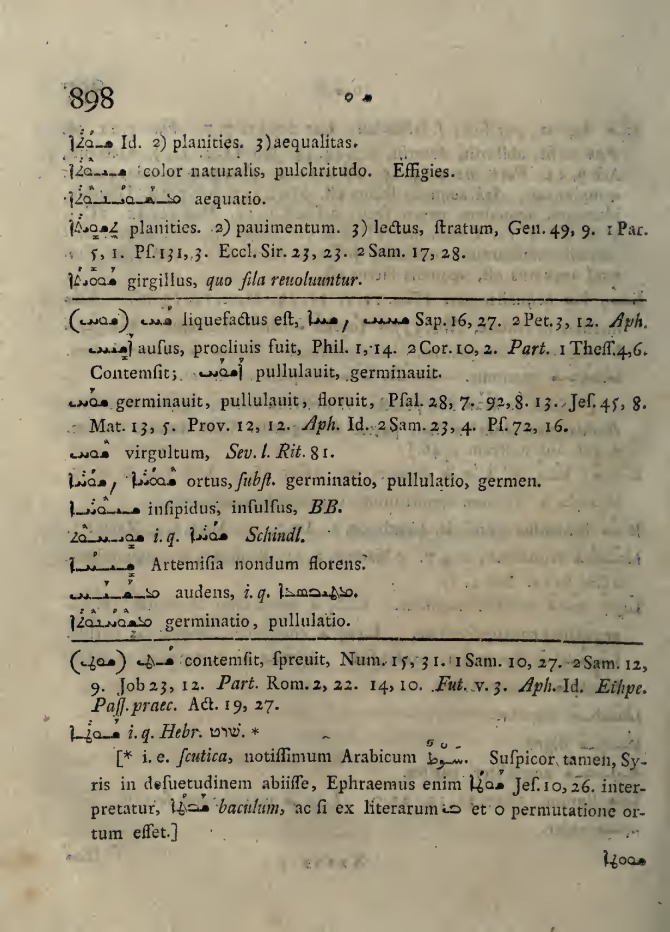 898 ܫܘ
Id. 2) planities. 3) aequalitas.
color naturalis, pulchritudo. Effigies.
ܡܫܘܝܢܘܬܐ aequatio.
ܬܫܘܝܬܐ planities. 2) pauimentum. 3) lectus, ſtratum, Gen. 49, 9. 1 Par.
5, 1. Pſ. 131, 3. Eccl. Sir. 23, 23. 2 Sam. 17, 28.
girgillus, quo fila reuoluuntur.
(ܫܘܚ) ܫܚ liquefactus eſt, Sap. 16, 27. 2 Pet. 3, 12. Aph.
ܐܫܝܚ auſus, procliuis fuit, Phil. 1, 14. 2 Cor. 10, 2. Part. 1 Theſſ. 4, 6.
Contemſit; ܐܫܘܚ pullulauit, germinauit.
ܫܘܚ germinauit, pullulauit, floruit, Pſal. 28, 7. 92, 8. 13. Jeſ. 45, 8.
Mat. 13, 5. Prov. 12, 12. Aph. Id. 2 Sam. 23, 4. Pſ. 72, 16.
ܫܘܚ virgultum, Sev. l. Rit. 81.
ܫܘܚܐ, ܫܘܘܚܐ ortus, ſubſt. germinatio, pullulatio, germen.
inſipidus, inſulſus, BB.
i. q. Schindl.
Artemiſia nondum florens.
ܡܫܝܚ audens, i. q.
ܡܫܘܚܢܘܬܐ germinatio, pullulatio.
(ܫܘܛ) ܫܛ contemſit, ſpreuit, Num. 15, 31. 1 Sam. 10, 27. 2 Sam. 12,
9. Job 23, 12. Part. Rom. 2, 22. 14, 10. Fut. v. 3. Aph. Id. Ethpe.
Paſſ. praec. Act. 19, 27.
ܫܘܛܐ i. q. Hebr. שוט. *
[* i. e. ſcutica, notiſſimum Arabicum سَوْطٌ. Suſpicor tamen, Sy-
ris in deſuetudinem abiiſſe, Ephraemus enim ܫܘܛܐ Jeſ. 10, 26. inter-
pretatur, ܫܒܛܐ baculum, ac ſi ex literarum ܒ et ܘ permutatione or-
tum eſſet.]
ܫܘܘܛܐ